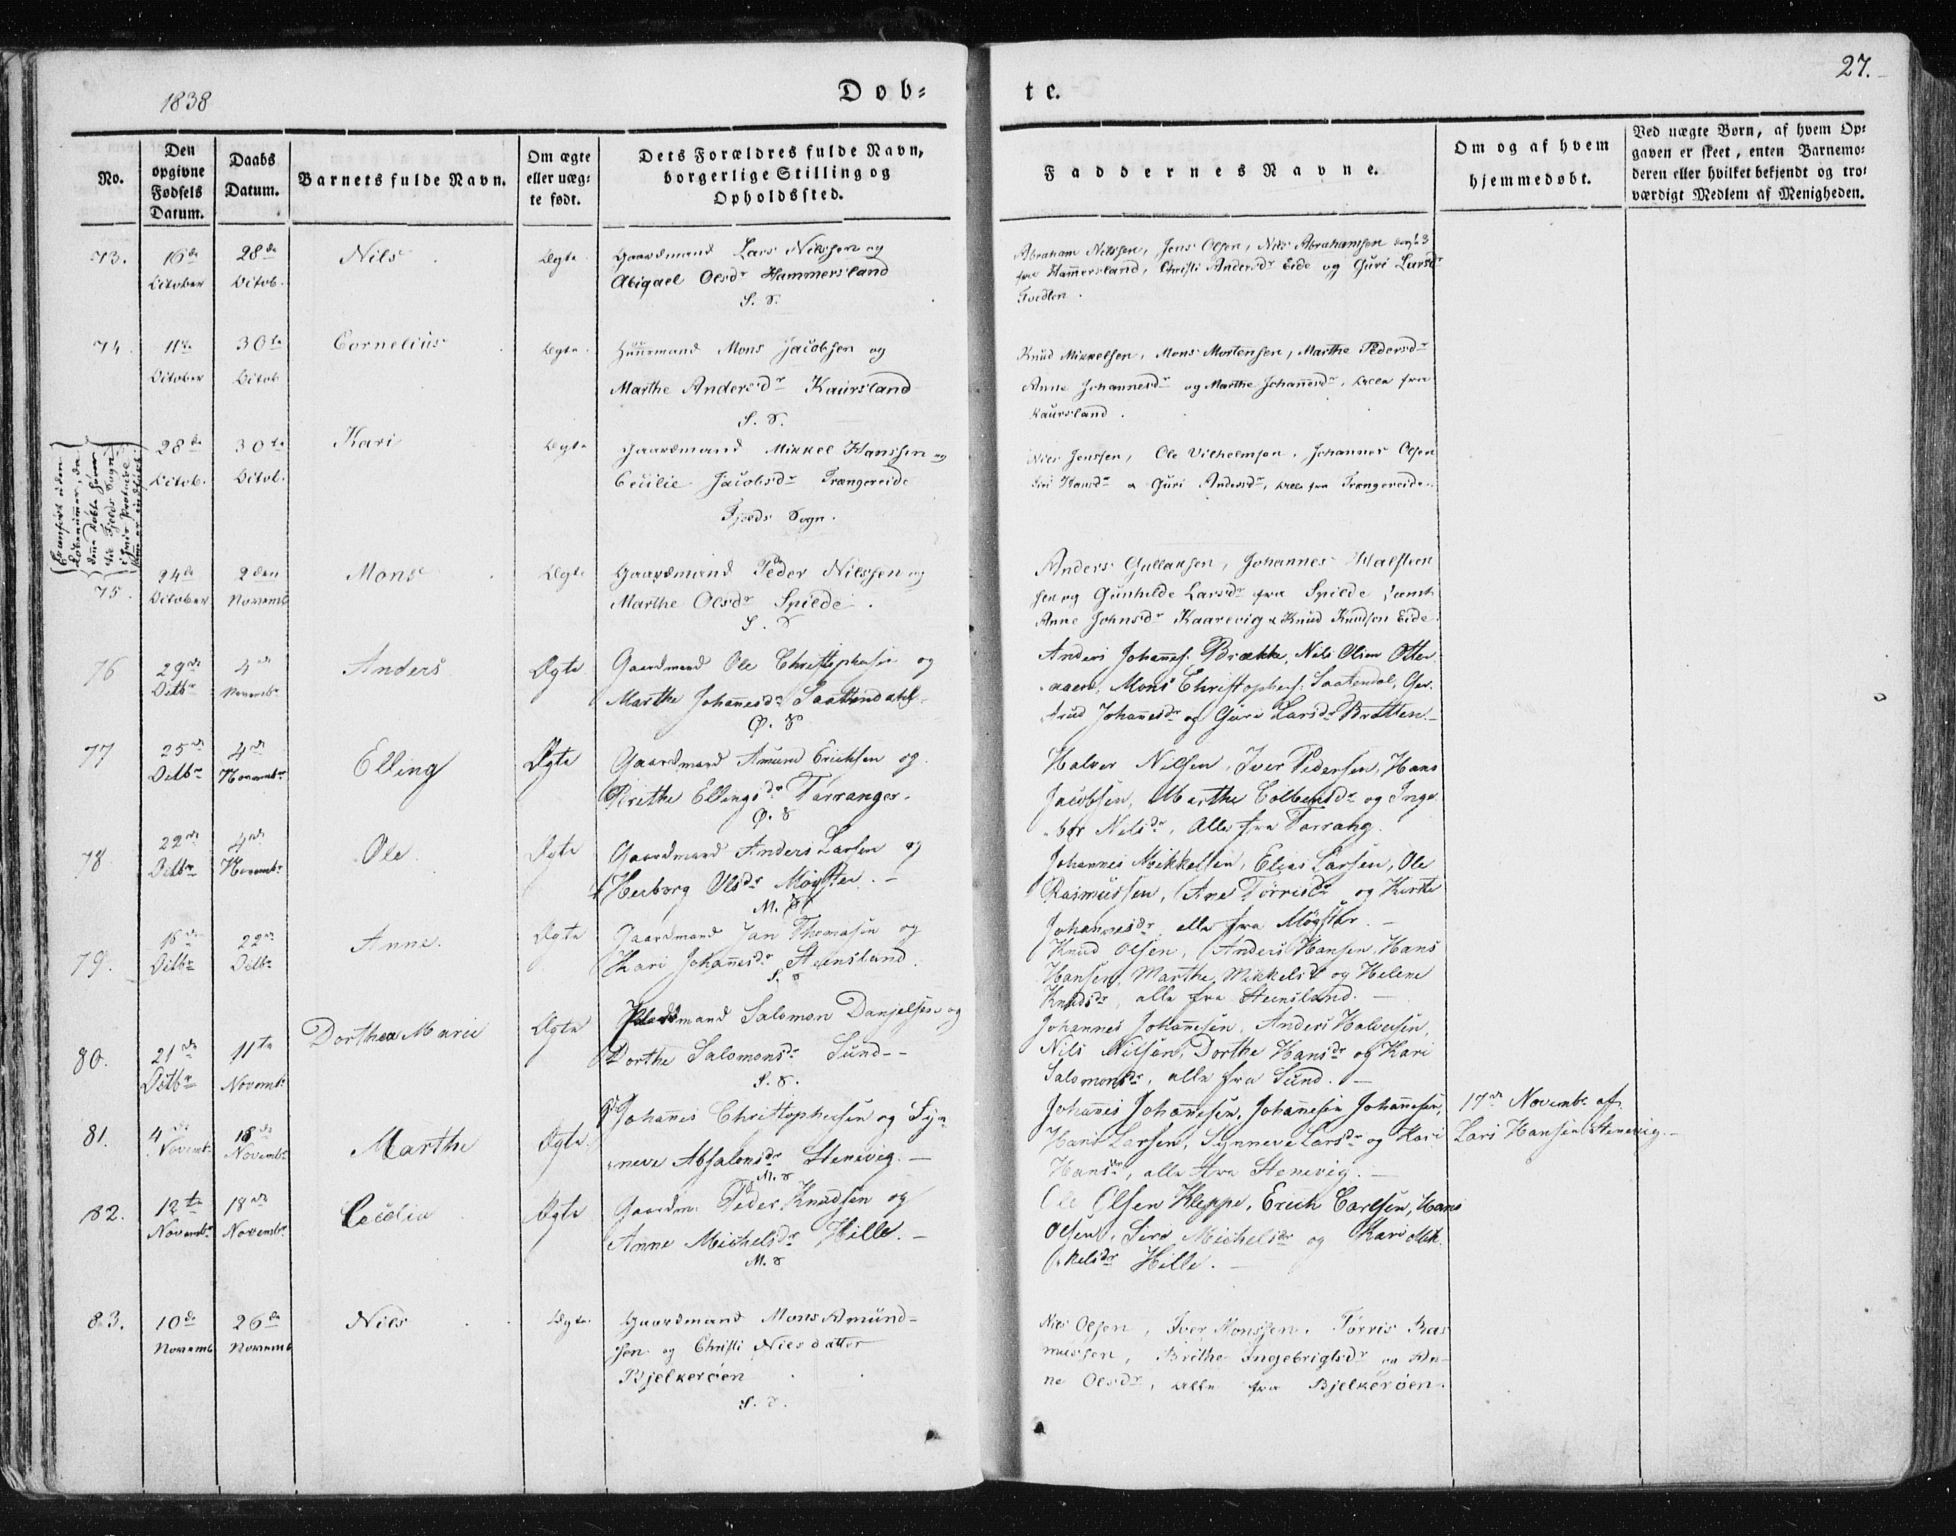 1838
Døb=
te.
27.
No.
Den
opgivne
Fødsels
Datum.
Daabs
Datum.
Barnets fulde Navn.
Om ægte
eller uæg-
te født.
Dets Forældres fulde Navn,
borgerlige Stilling og
Opholdssted.
Faddernes Navne.
Om og af hvem
hjemmedøbt.
Ved uægte Børn, af hvem Op-
gaven er skeet, enten Barnemo-
deren eller hvilket bekjendt og tro-
værdigt Medlem af Menigheden.
73.
16de
October
28de
Octob.
Nils
Ægte
Gaardmand Lars Nilssen og
Abigael Olsdr Hammersland
S. S.
Abraham Nilssen, Jens Olsen, Nils Abrahamsen
fra Hammersland, Christi Andersdr Eide og Guri Larsdr
Tvedten.
74.
11te
October
30te
Octob.
Cornelius
Ægte.
Huusmand Mons Jacobsen og
Marthe Andersdr Kaursland
S. S.
Knud Mikkelsen, Mons Mortensen, Marthe Pedersdr
Anne Johannesdr og Marthe Johannesdr, alle fra
Kaursland.
28de
Octob.
30te
Octob.
Kari
Ægte
Gaardmand Mikkel Hanssen og
Cecilie Jacobsdr Trængereide
Fjelds Sogn.
Nils Jenssen, Ole Vilhelmsen, Johannes Olsen
Siri Hansdr & Guri Andersdr, alle fra Trængereide.
75.
24de
October
2den
Novemb
Mons
Ægte
Gaardmand Peder Nilssen og
Marthe Olsdr Spilde.
S. S
Anders Gullaksen, Johannes Halsteen
sen og Gunhilde Larsdr fra Spilde samt
Anne Johnsdr Kaarevig & Knud Knudsen Eide.
76
29de
Octbr
4de
Novembr
Anders
Ægte
Gaardmand Ole Christophersen og
Marthe Johannesdr Saattendahl.
Ø. S
Anders Johannes. Brække, Nils Olsen Otter
aaen, Mons Christophers. Saatendal, Ger-
trud Johannesdr og Guri Larsdr Bratten.
77
25de
Octbr
4de
Novembr
Elling
Ægte
Gaardmand Amund Erichsen og
Brithe Ellingsdr Tarranger.
Ø. S
Halvor Nilsen, Iver Pedersen, Hans
Jacobsen, Marthe Colbensdr og Inge
bor Nelsdr, Alle fra Torrang.
78
22de
Octbr
4de
Novembr
Ole
Ægte
Gaardmand Anders Larsen og
Herborg Olsdr Møgster. -
M. S
Johannes Mikkelsen, Elias Larsen, Ole
Rasmussen, Ane Tørrisdr og Kirste
Johannesdr, alle fra Møgster. -
79.
22de
Octbr
Anne.
Ægte
Gaardmand Jan Thomasen og
Kari Johannesdr Steensland.
S. S
Knud Olsen, Anders Hansen, Hans
Hansen, Marthe Mikkelsdr og Helene
Knudsdr, alle fra Steensland. -
80.
21de
Octbr
11te
Novembr
Dorthea Marie
Ægte
mand Salomon Danjelsen og
Dorthe Salomonsdr Sund--
S. S.
Johannes Johannesen, Anders Halversen,
Nils Nilsen, Dorthe Hansdr og Kari
Salomonsdr, alle fra Sund. -
81.
4de
Novembr
18de
Novembr
Marthe
Ægte.
Johannes Christophersen og Syn
neve Absalonsdr Stenevig. -
M. S
Johannes Johannesen, Johannesen Johannesen,
Hans Larsen, Synneve Larsdr og Kari
Hansdr, alle fra Stenevig. -
17de Novembr af
Lars Hansen Stenevig. -
82.
12te
Novembr
18de
Novembr
Cecilia
Ægte
Gaardm: Peder Knudsen og
Anne Michelsdr Hille. -
M. S
Ole Olsen Kleppe, Erich Carlsen, Hans
Olsen, Siri Michelsdr og Kari Mik
kelsdr Hille. -
83.
10de
Novemb
26de
Novemb
Nils
Ægte.
Gaardmand Mons Amund-
sen og Christi Nilsdatter
Bjelkerøen
S. S.
Nils Olsen, Iver Monssen, Tørris Ras
mussen, Brithe Ingebrigtsdr og An-
ne Olsdr, alle fra Bjelkerøen.